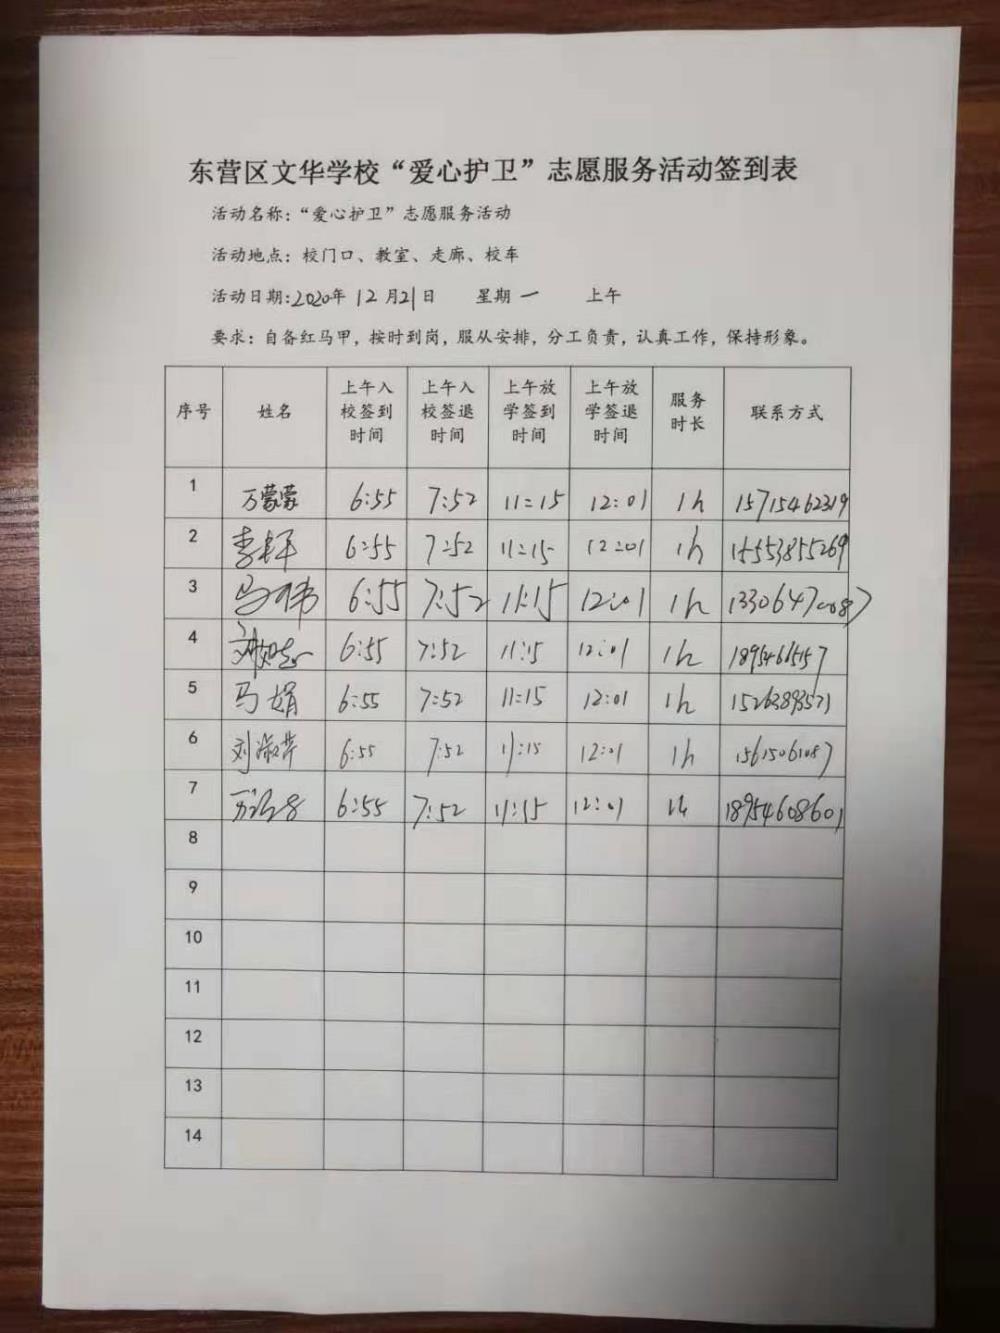 东营区文华学校“爱心护卫”志愿服务活动签到表
活动名称：“爱心护卫”志愿服务活动
活动地点：校门口、教室、走廊、校车
活动日期：2020年 12月21日 星期一 上午
要求：自备红马甲，按时到岗，服从安排，分工负责，认真工作，保持形象。
序号 姓名 上午入校签到时间 上午入校签退时间 上午放学签到时间 上午放学签退时间 服务时长 联系方式
1 万蒙蒙 6:55 7:52 11:15 12:01 1h 15715462319
2 6:55 7:52 11:15 12:01 1h 15553855269
3 6:55 7:52 11:15 12:01 1h
4 6:55 7:52 11:15 12:01 1h
5 马娟 6:55 7:52 11:15 12:01 1h
6 刘淑芹 6:55 7:52 11:15 12:01 1h 15615061087
7 6:55 7:52 11:15 12:01 1h 18954608601
8
9
10
11
12
13
14